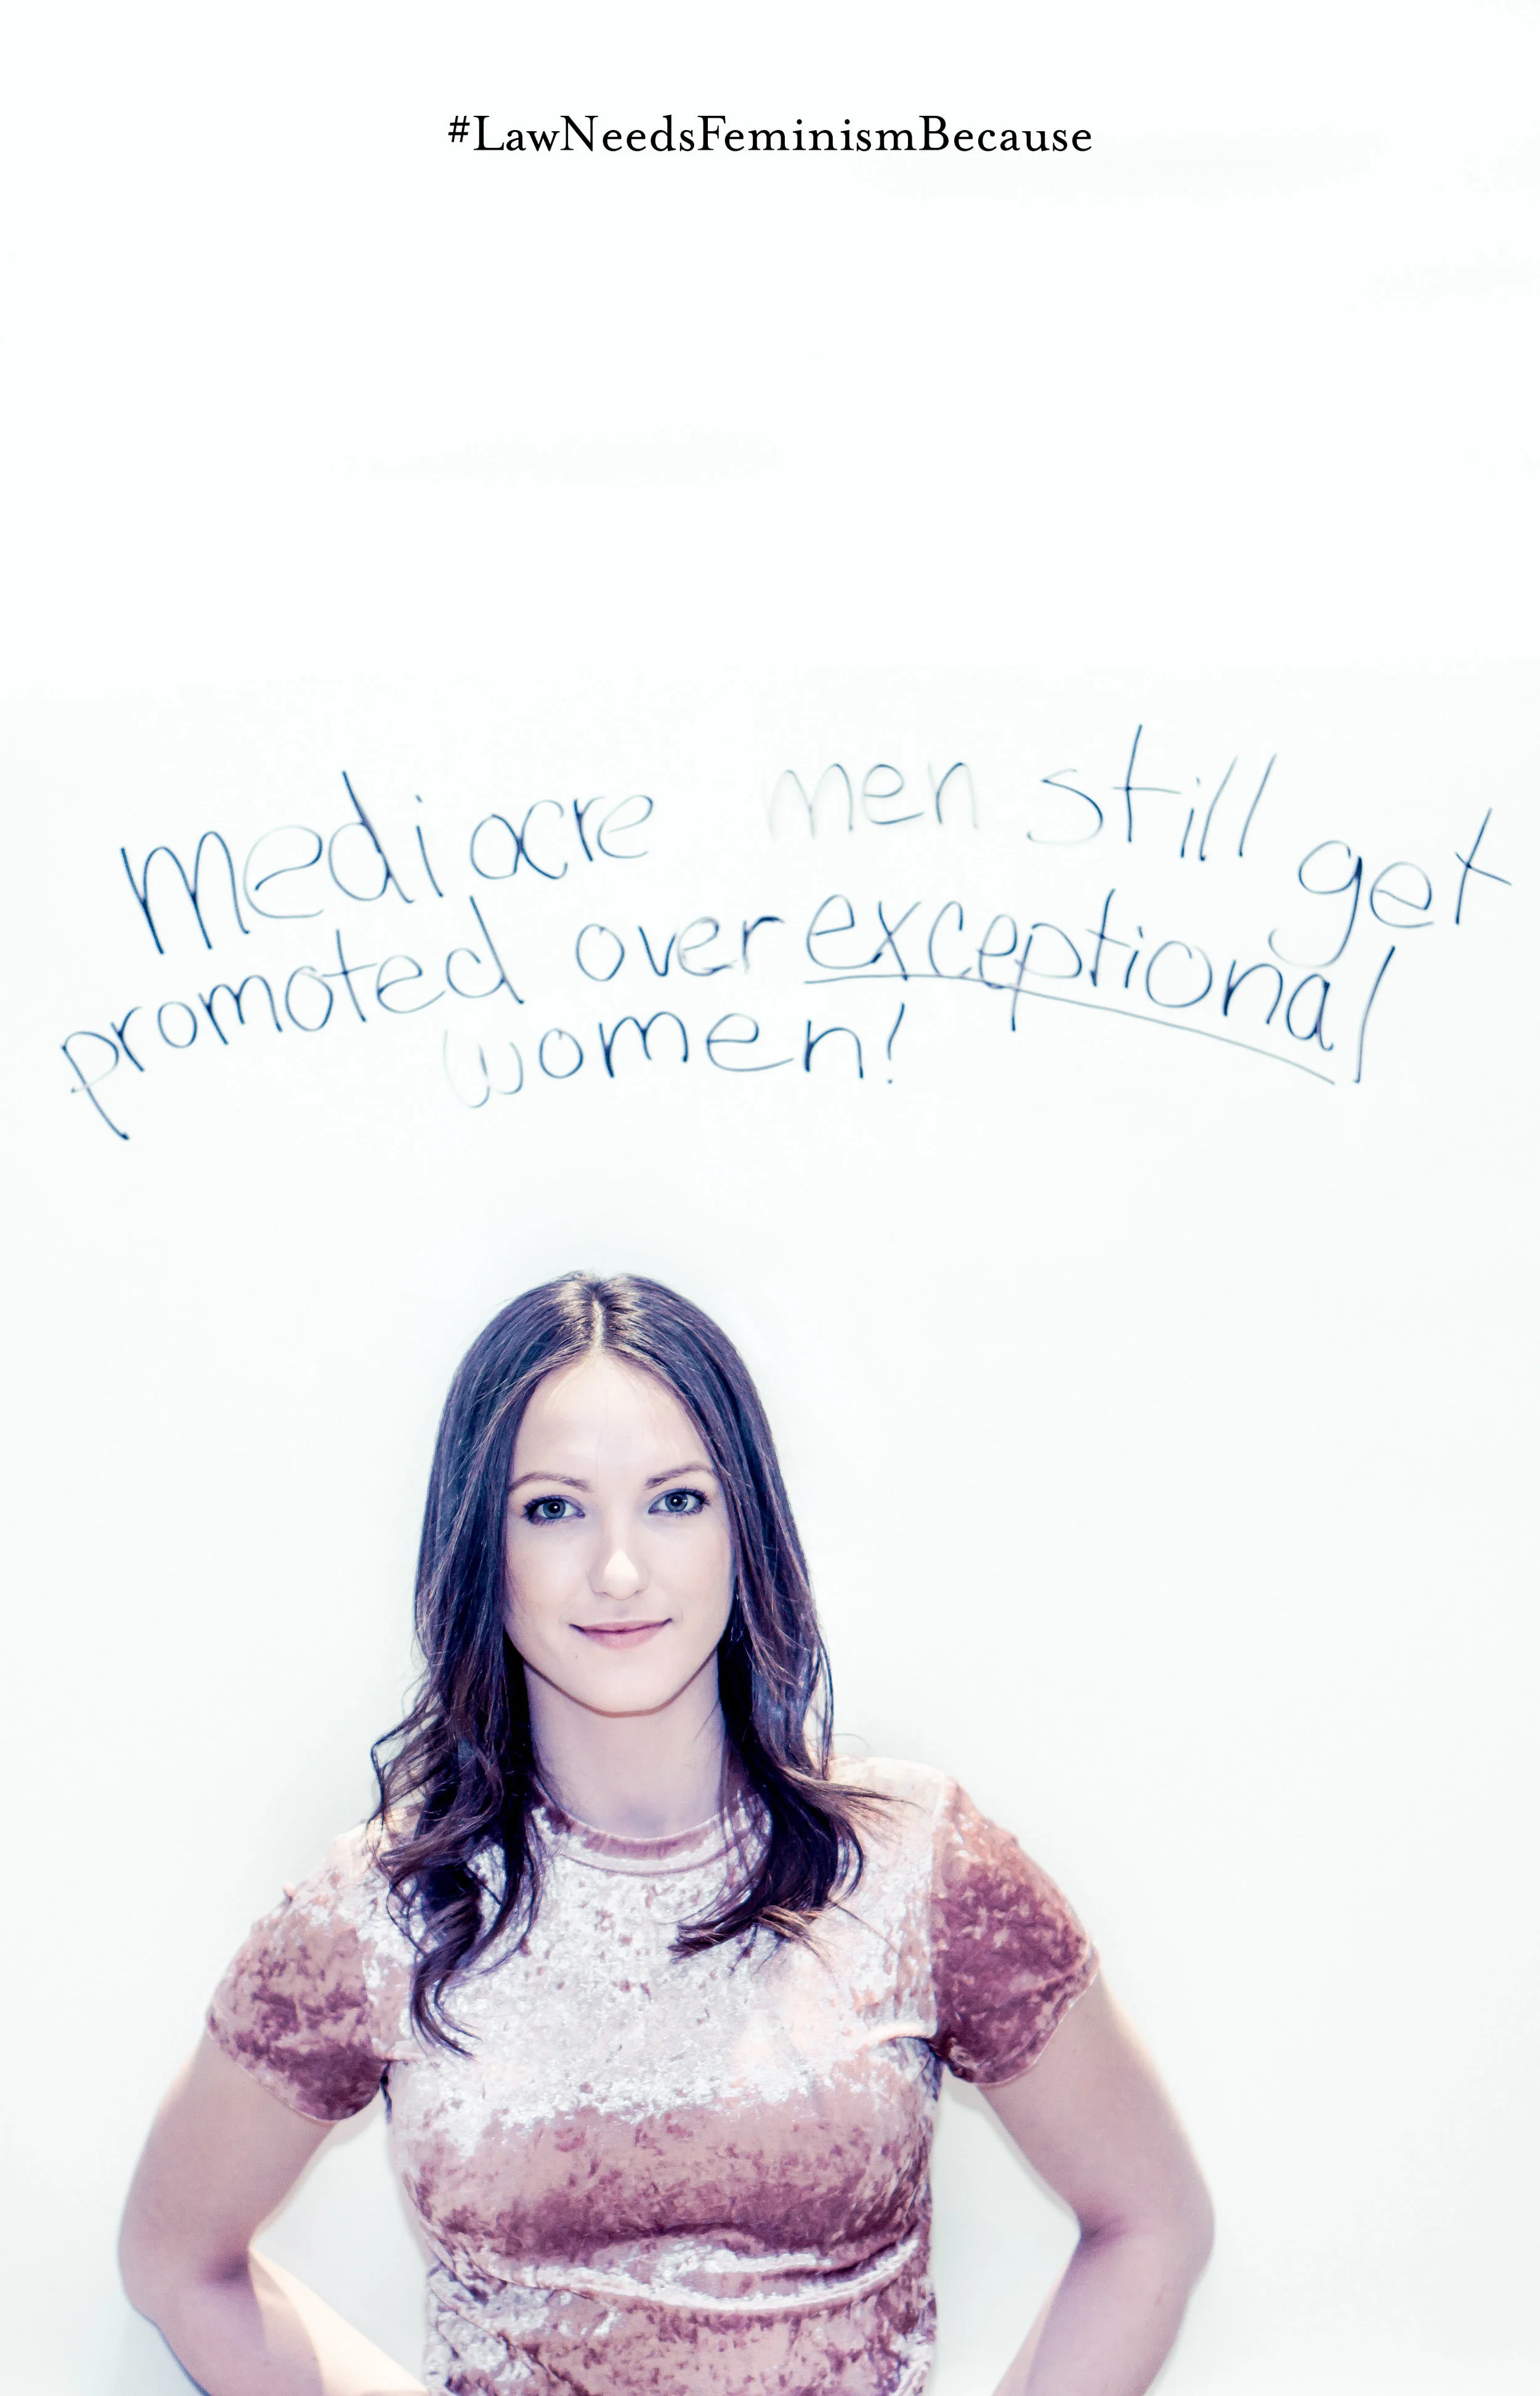 #LawNeedsFeminismBecause
mediocre men still get
promoted over exceptional
women!